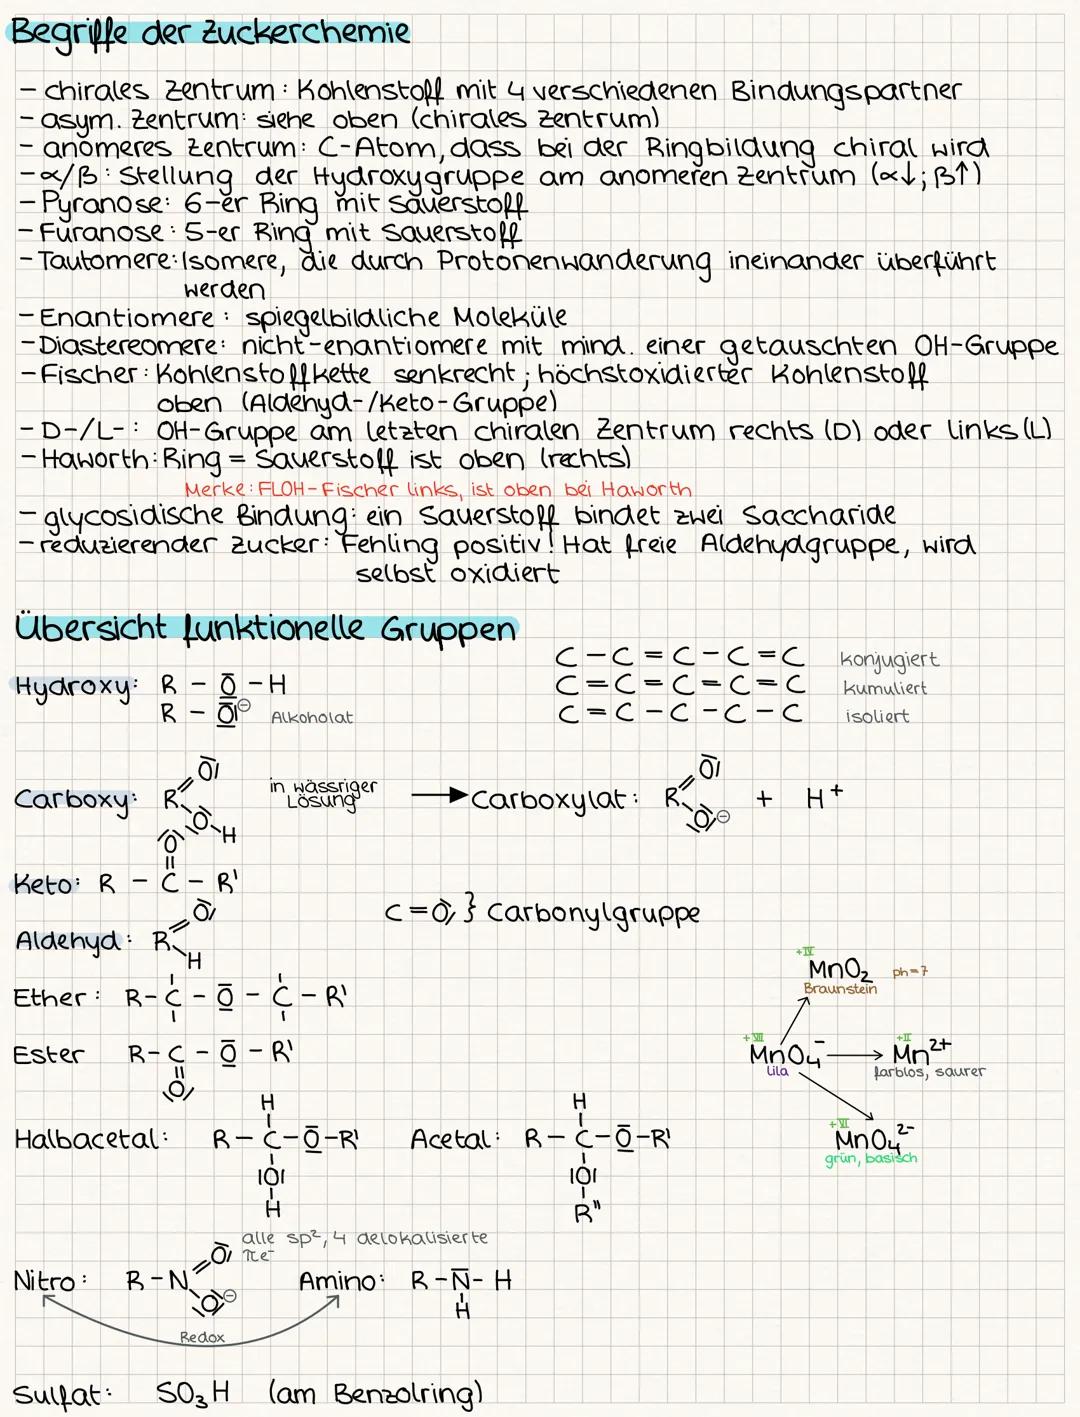 Begriffe der Zuckerchemie
- chirales Zentrum: Kohlenstoff mit 4 verschiedenen Bindungspartner
- asym. Zentrum: siehe oben (chirales Zentrum)
- anomeres Zentrum: C-Atom, dass bei der Ringbildung chiral wird
- α/β: Stellung der Hydroxygruppe am anomeren Zentrum (α↓; β↑)
- Pyranose: 6-er Ring mit Sauerstoff
- Furanose: 5-er Ring mit Sauerstoff
- Tautomere: Isomere, die durch Protonenwanderung ineinander überführt
werden
- Enantiomere: spiegelbildliche Moleküle
- Diastereomere: nicht-enantiomere mit mind. einer getauschten OH-Gruppe
- Fischer: Kohlenstoffkette senkrecht; höchstoxidierter Kohlenstoff
oben (Aldehyd-/Keto-Gruppe)
- D-/L-: OH-Gruppe am letzten chiralen Zentrum rechts (D) oder links (L)
- Haworth: Ring = Sauerstoff ist oben (rechts)
Merke: FLOH-Fischer links, ist oben bei Haworth
- glycosidische Bindung: ein Sauerstoff bindet zwei Saccharide
- reduzierender Zucker: Fehling positiv! Hat freie Aldehydgruppe, wird
selbst oxidiert
Übersicht funktionelle Gruppen
C - C = C - C = C konjugiert
Hydroxy: R - O̲̅ - H
C = C = C = C = C kumuliert
R - O̲̅|⊖ Alkoholat
C = C - C - C - C isoliert
O̅|
Carboxy: R in wässriger
Lösung
O H
→ Carboxylat: R + H⁺
O̅|
O⊖
O
||
Keto: R - C - R'
C=O } Carbonylgruppe
O
Aldehyd: R
H
Ether: R - C - O̲̅ - C - R'
Ester R - C - O̲̅ - R'
||
O
+IV
MnO₂ ph=7
Braunstein
+VII
MnO₄⁻
lila
+II
Mn²⁺
farblos, saurer
+VI
MnO₄²⁻
grün, basisch
H
Halbacetal: R - C - O̲̅ - R'
|O|
H
H
Acetal: R - C - O̲̅ - R'
|O|
R"
alle sp², 4 delokalisierte
πe⁻
O
Nitro: R - N
O⊖
Amino: R - N̅ - H
H
Redox
Sulfat: SO₃H (am Benzolring)